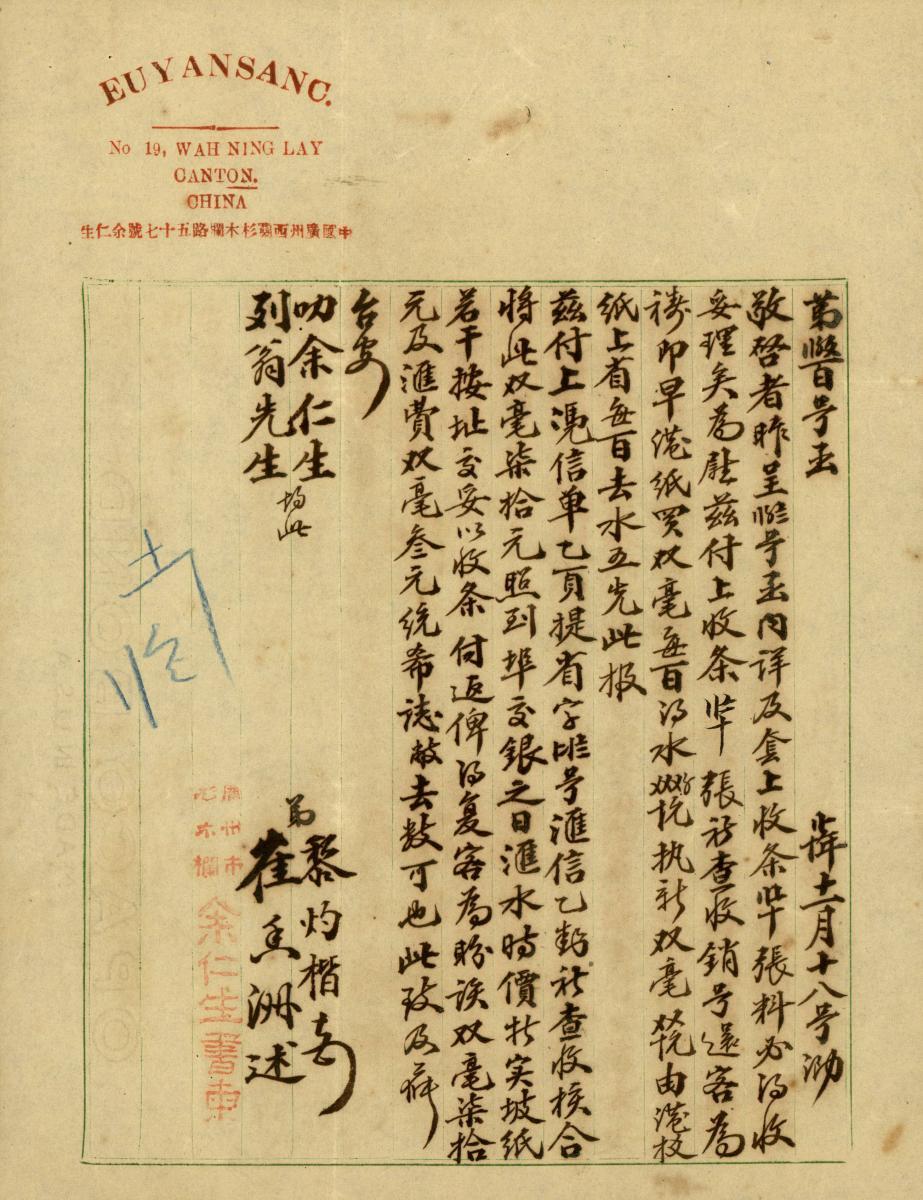 EUYANSANG.
No 19, WAH NING LAY
CANTON.
CHINA
中國廣州西關杉木欄路五十七號余仁生
第百号函
十一月十八号泐
敬啓者昨呈号函内詳及套上收条張料必得收
妥理矣為慰茲付上收条張祈查收銷号還客為
禱即早港紙買双毫每百得水執新双毫由港
紙上省每百去水五先此报
茲付上憑信单乙頁提省字号滙信乙封祈查收核合
將此双毫柒拾元照到埠交銀之日滙水時價折实坡紙
若干按址交妥以收条付返俾得复客為盼該双毫柒拾
元及滙費双毫叁元統希誌敝去数可也此致及頌
台安
叻余仁生
列翁先生
均此
弟
黎灼楷
崔述
廣州市
杉木欄
余仁生書柬